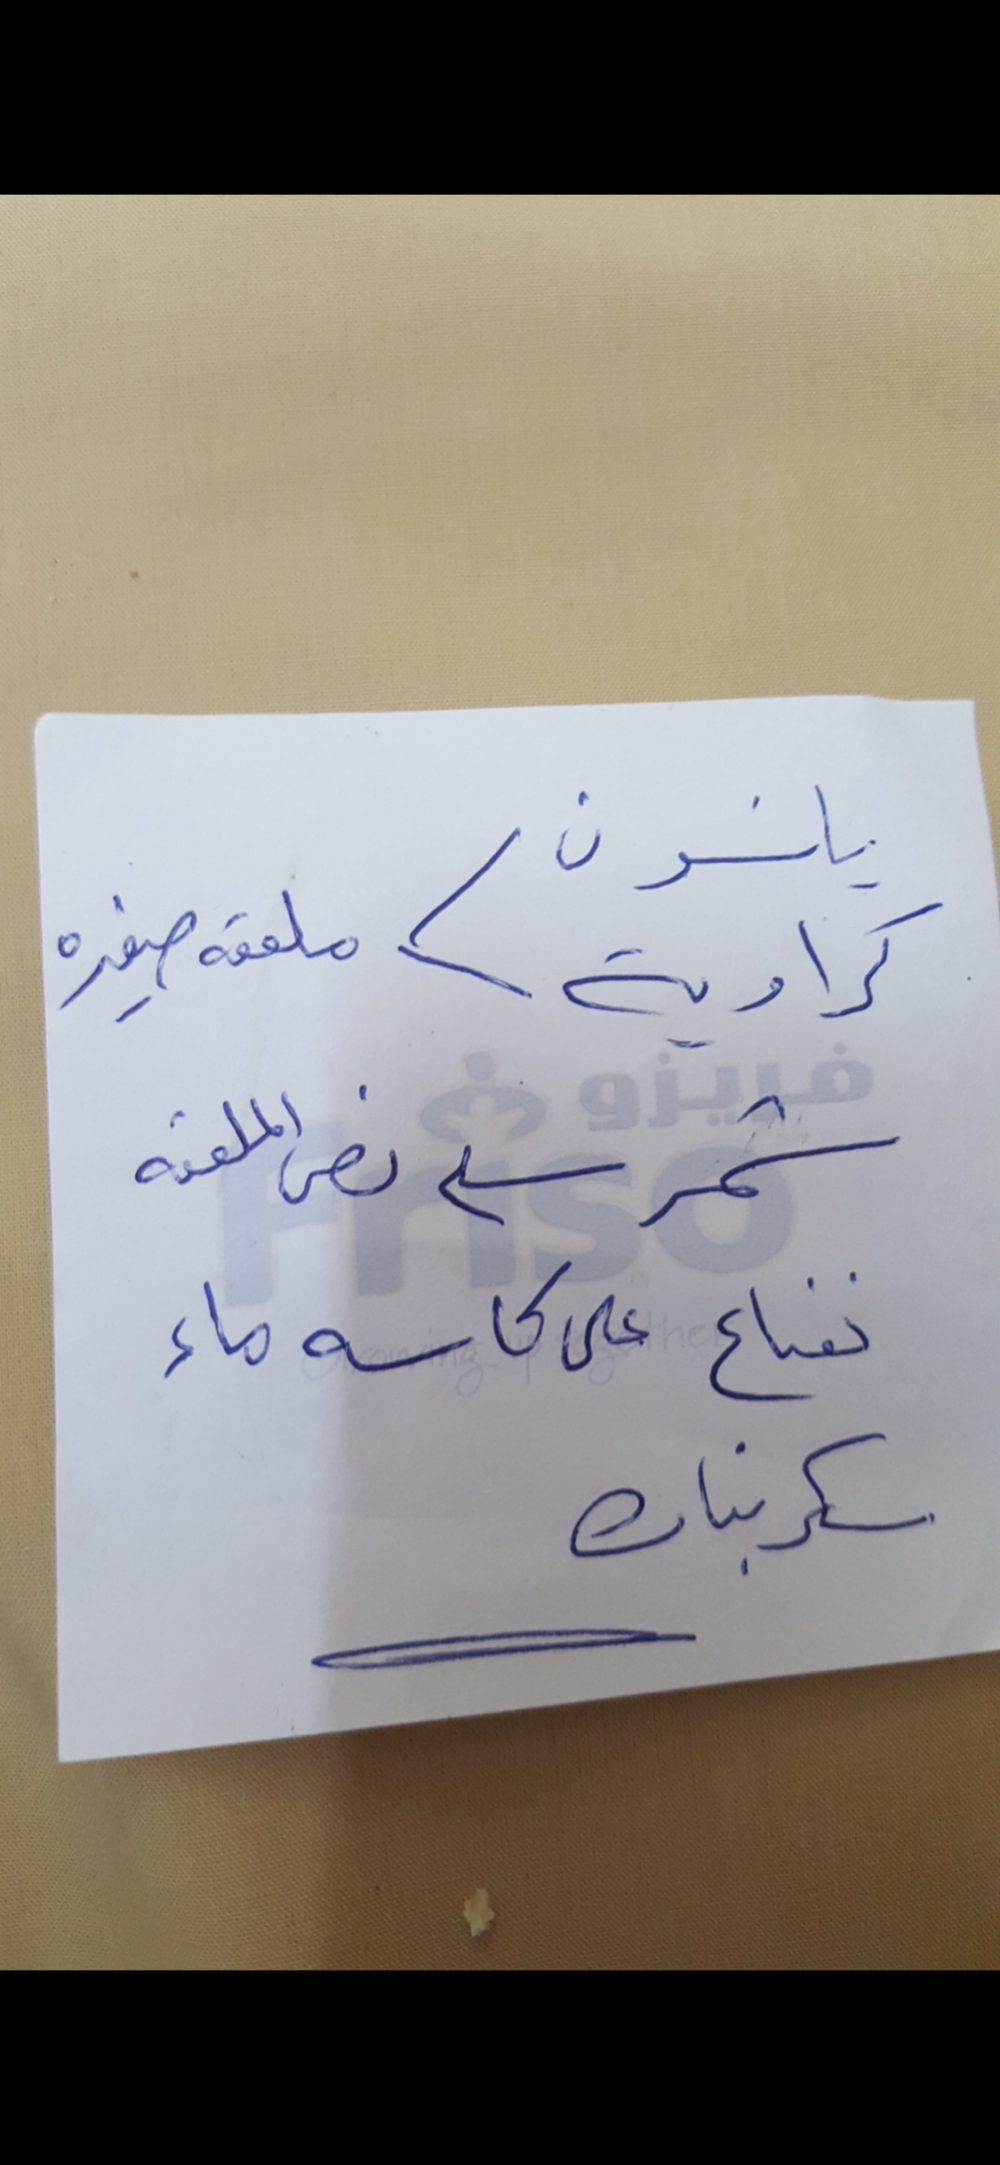 يانسون
كراوية > ملعقه صغيره
فريزو
Friso
شمر نص الملعقه
Growing up together
نعناع على كاسه ماء
سكر نبات